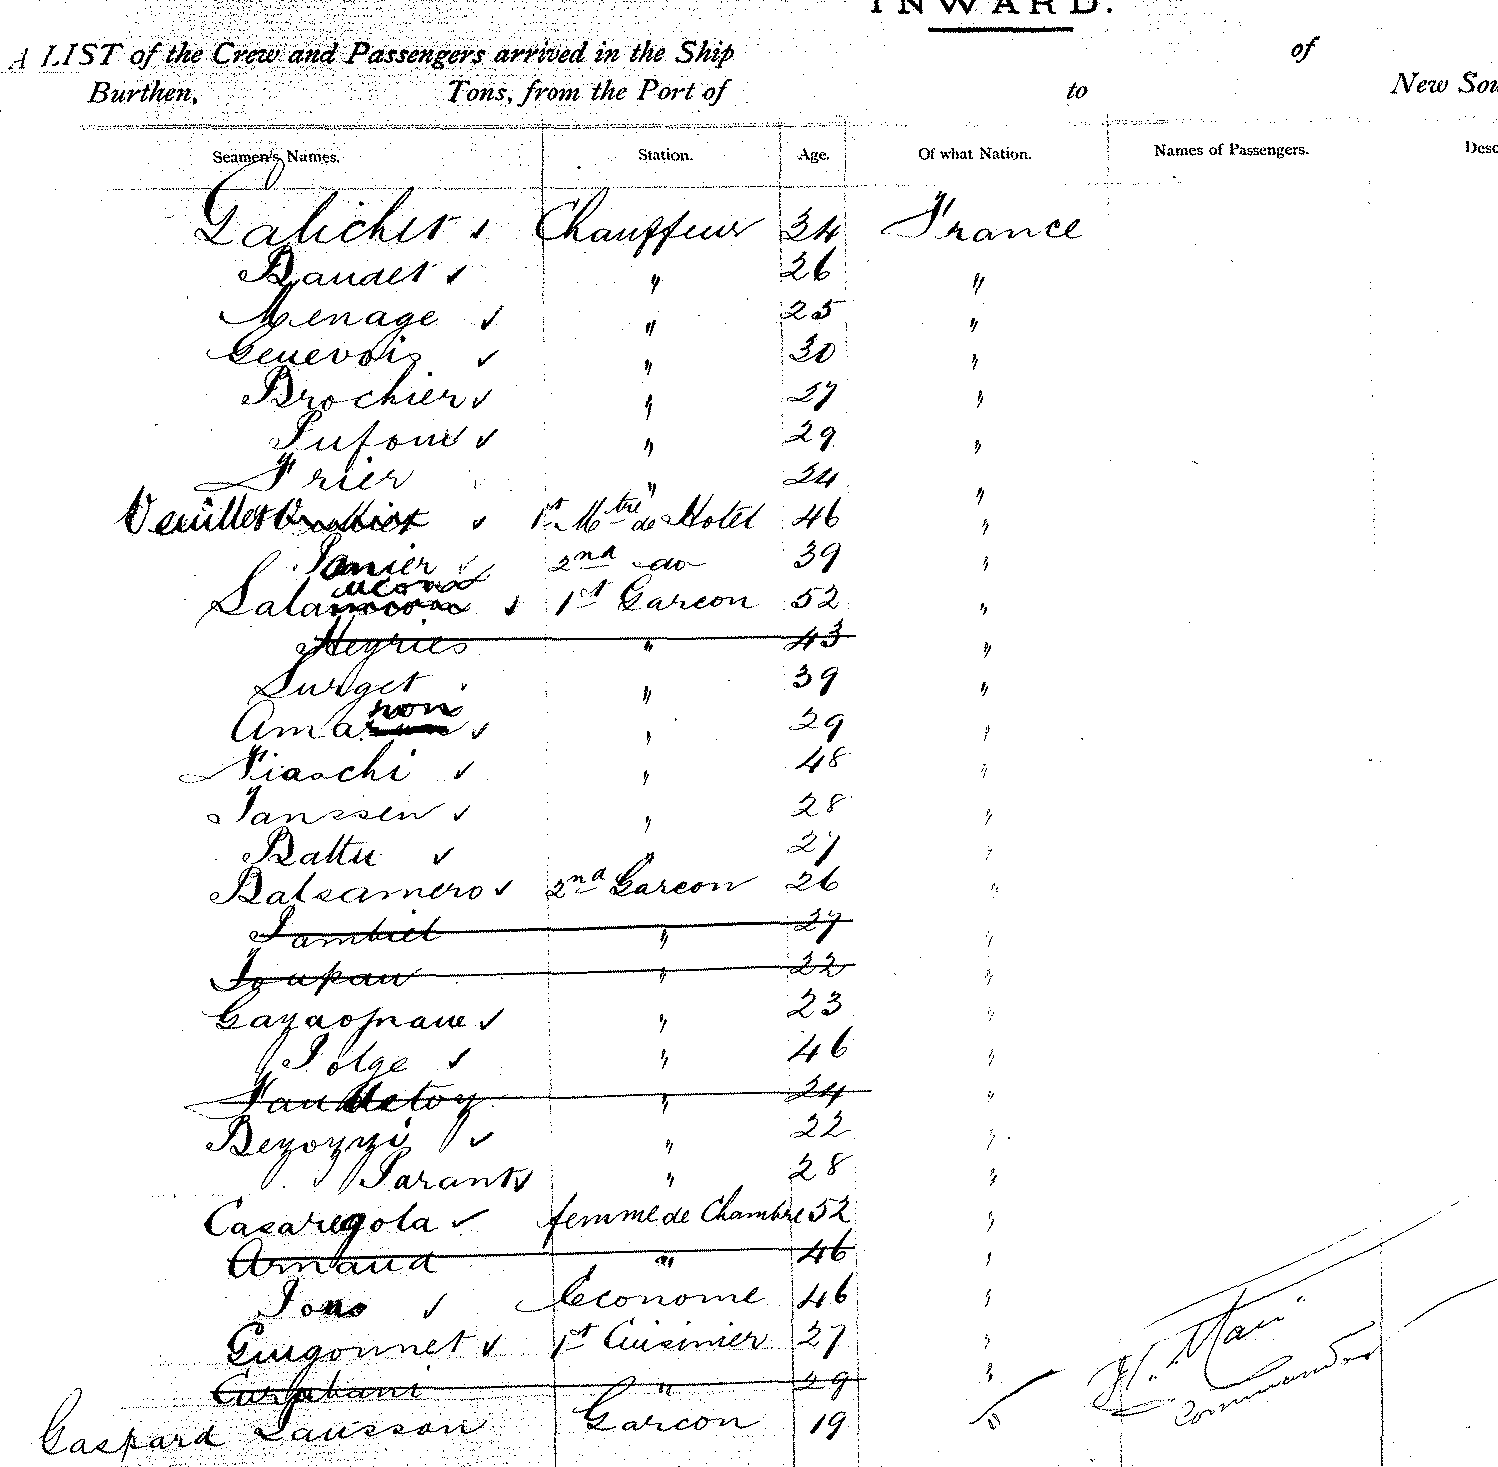 INWARD.
A LIST of the Crew and Passengers arrived in the Ship of
Burthen, Tons, from the Port of to New Sou
Seamen's Names. Station. Age. Of what Nation. Names of Passengers. Desc
Galichet ✓ Chauffeur 34 France
Baudet ✓ " 26 "
Menage ✓ " 25 "
Genevois ✓ " 30 "
Brochier ✓ " 27 "
✓ " 29 "
Frier " 24 "
Veuillet ✓ 1st Mtre de Hotel 46 "
Panier ✓ 2nd do 39 "
✓ 1st Garcon 52 "
Heyries " 43 "
Surget " 39 "
Amanon ✓ " 29 "
Fiaschi ✓ " 48 "
Janssen ✓ " 28 "
Battu ✓ " 27 "
Balsamero ✓ 2nd Garcon 26 "
" 27 "
" 22 "
✓ " 23 "
✓ " 46 "
" 24 "
Bezozzi ✓ " 22 "
Parant ✓ " 28 "
Casaregola ✓ femme de Chambre 52 "
Arnaud " 46 "
✓ Econome 46 "
Guigonnet ✓ 1st Cuisinier 27 "
" 29 "
Gaspard Garcon 19
Commander